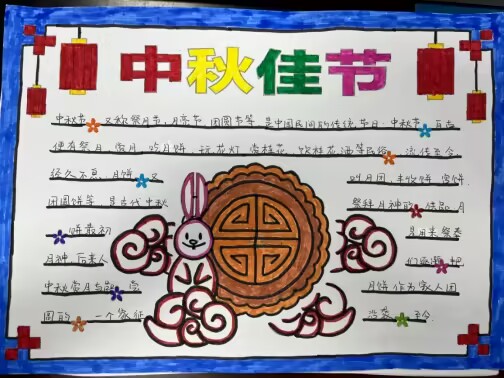 中秋佳节
中秋节 又称祭月节、月亮节、团圆节等,是中国民间的传统节日.中秋节 自古
便有祭月、赏月、吃月饼、玩花灯、赏桂花、饮桂花酒等民俗 流传至今,
经久不息.月饼 又
叫月团、丰收饼、宫饼、
团圆饼等 是古代中秋
祭拜月神的 供品.月
饼最初
是用来祭奉
月神.后来人
们逐渐 把
中秋赏月与 尝
月饼作为家人团
圆的 一个象征
至今.